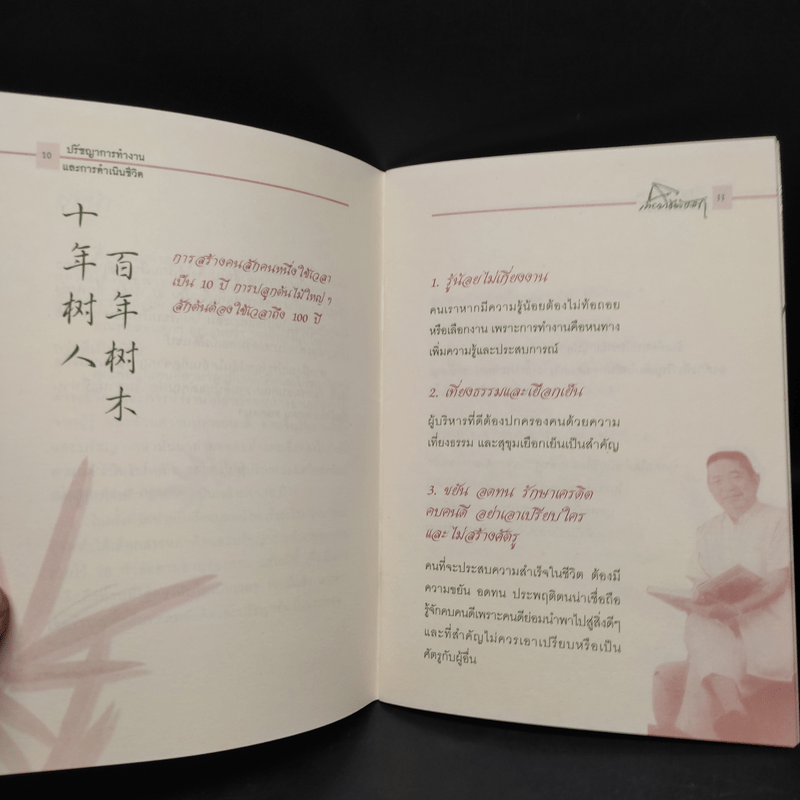 10
ปรัชญาการทำงาน
และการดำเนินชีวิต
十年树人
百年树木
การสร้างคนสักคนหนึ่งใช้เวลา
เป็น 10 ปี การปลูกต้นไม้ใหญ่ ๆ
สักต้นต้องใช้เวลาถึง 100 ปี
11
1. รู้น้อยไม่เกี่ยงงาน
คนเราหากมีความรู้น้อยต้องไม่ท้อถอย
หรือเลือกงาน เพราะการทำงานคือหนทาง
เพิ่มความรู้และประสบการณ์
2. เที่ยงธรรมและเยือกเย็น
ผู้บริหารที่ดีต้องปกครองคนด้วยความ
เที่ยงธรรม และสุขุมเยือกเย็นเป็นสำคัญ
3. ขยัน อดทน รักษาเครดิต
คบคนดี อย่าเอาเปรียบใคร
และ ไม่สร้างศัตรู
คนที่จะประสบความสำเร็จในชีวิต ต้องมี
ความขยัน อดทน ประพฤติตนน่าเชื่อถือ
รู้จักคบคนดีเพราะคนดีย่อมนำพาไปสู่สิ่งดีๆ
และที่สำคัญไม่ควรเอาเปรียบหรือเป็น
ศัตรูกับผู้อื่น